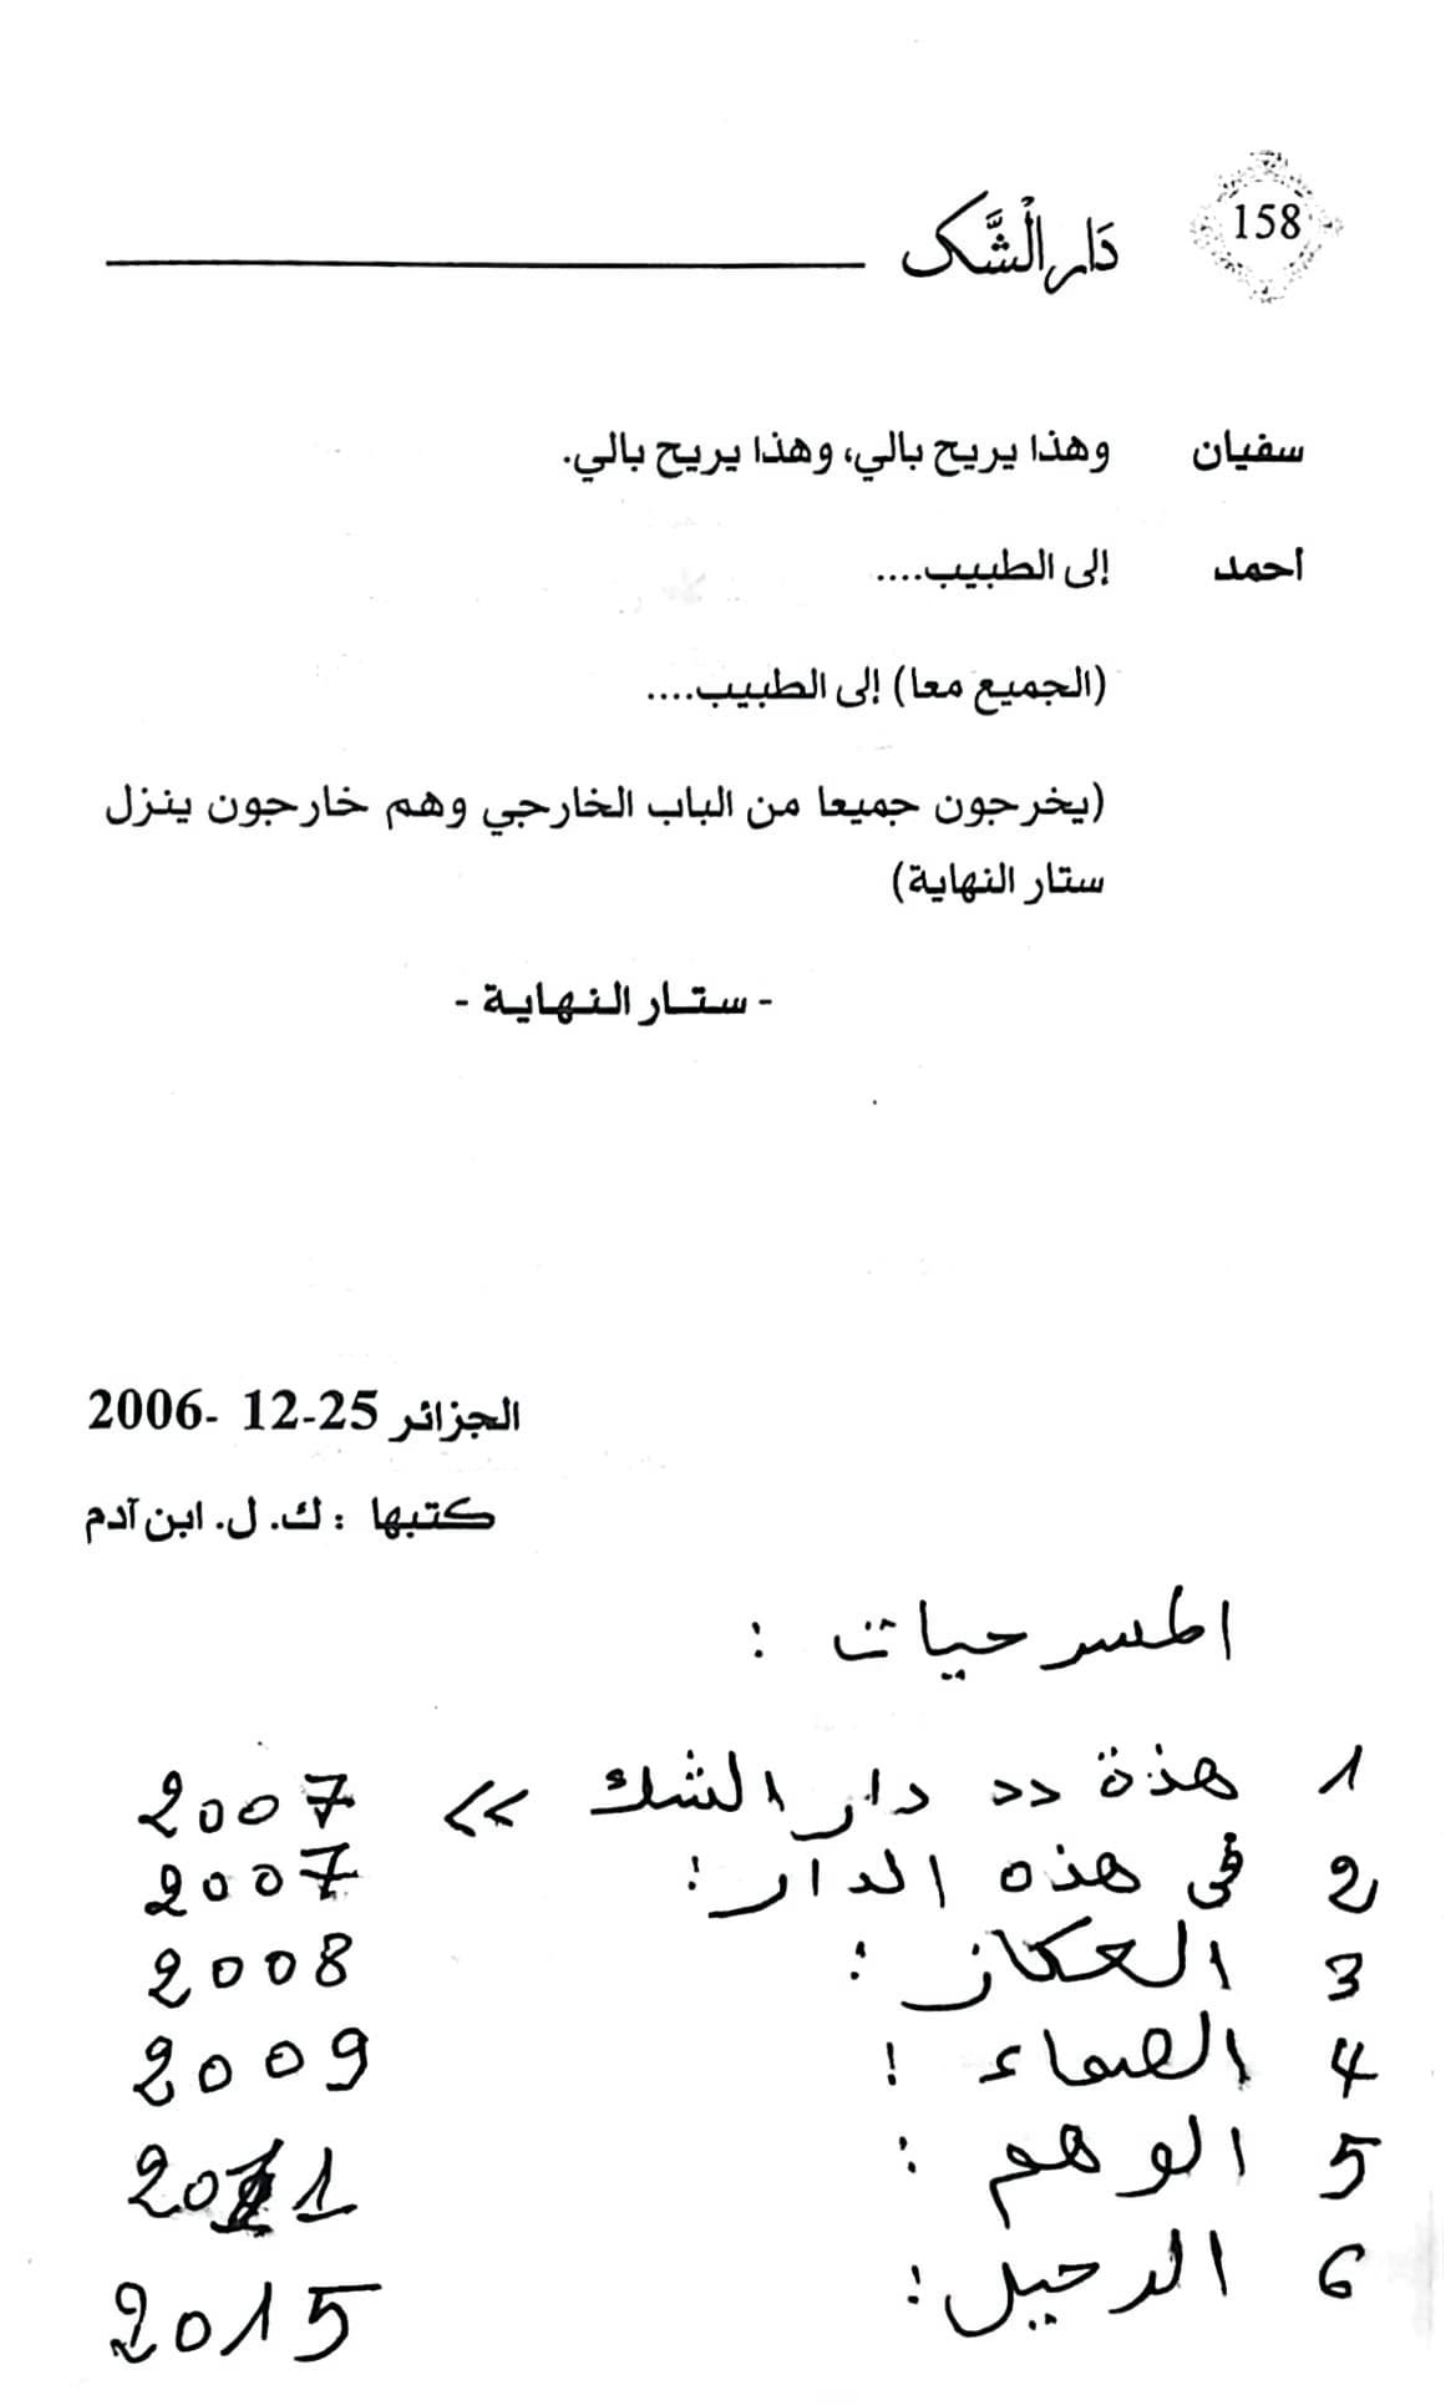 158
دَار الْشَّك
سفيان وهذا يريح بالي، وهذا يريح بالي.
أحمد إلى الطبيب....
(الجميع معا) إلى الطبيب....
(يخرجون جميعا من الباب الخارجي وهم خارجون ينزل
ستار النهاية)
- ستار النهاية -
الجزائر 25-12 -2006
كتبها : ك. ل. ابن آدم
المسرحيات :
1 هذة >> دار الشك >> 2007
2 في هذه الدار : 2007
3 العكاز : 2008
4 الصماء : 2009
5 الوهم : 2011
6 الرحيل : 2015